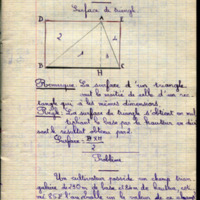 Surface du triangle
D A E
1 2
B H C
Remarque La surface d'un triangle
est la moitié de celle d'un rec-
tangle qui a les mêmes dimensions.
Règle La surface du triangle s'obtient en mul
tipliant la base par la hauteur en divi
sant le résultat obtenu par 2.
Surface = B x H
2
Problème
Un cultivateur possède un champ trian
gulaire de de base et de hauteur